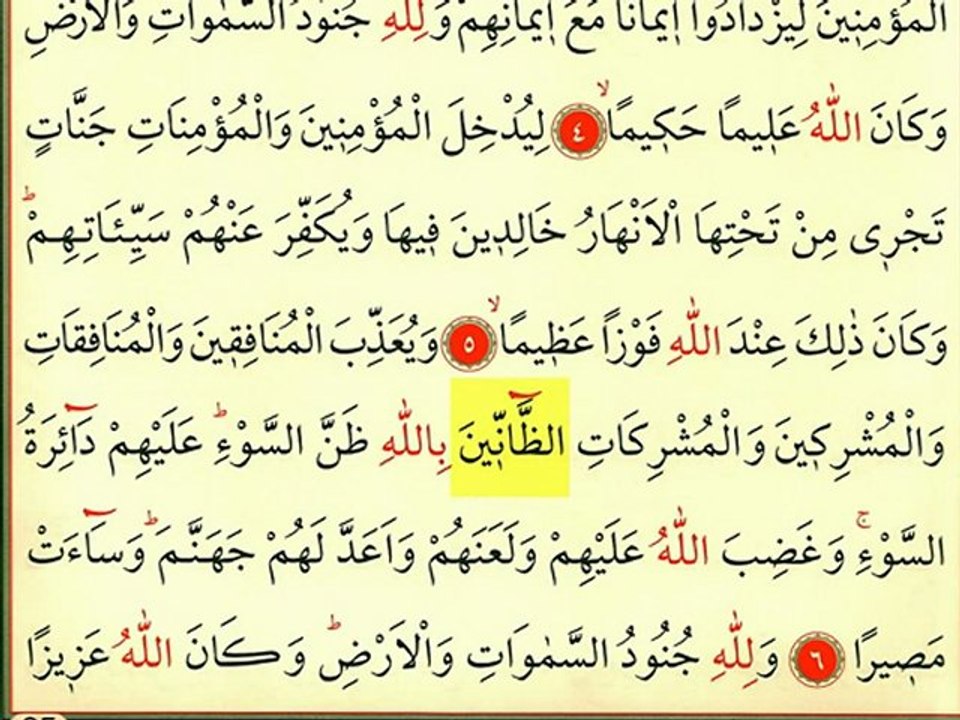 الْمُؤْمِنِينَ لِيَزْدَادُٓوا اِيمَانًا مَعَ اِيمَانِهِمْ وَلِلّٰهِ جُنُودُ السَّمٰوَاتِ وَالْاَرْضِ
وَكَانَ اللّٰهُ عَلِيمًا حَكِيمًاۙ ٤ لِيُدْخِلَ الْمُؤْمِنِينَ وَالْمُؤْمِنَاتِ جَنَّاتٍ
تَجْرِى مِنْ تَحْتِهَا الْاَنْهَارُ خَالِدِينَ فِيهَا وَيُكَفِّرَ عَنْهُمْ سَيِّـَٔاتِهِمْۜ
وَكَانَ ذٰلِكَ عِنْدَ اللّٰهِ فَوْزًا عَظِيمًاۙ ٥ وَيُعَذِّبَ الْمُنَافِقِينَ وَالْمُنَافِقَاتِ
وَالْمُشْرِكِينَ وَالْمُشْرِكَاتِ الظَّٓانِّينَ بِاللّٰهِ ظَنَّ السَّوْءِۜ عَلَيْهِمْ دَٓائِرَةُ
السَّوْءِۚ وَغَضِبَ اللّٰهُ عَلَيْهِمْ وَلَعَنَهُمْ وَاَعَدَّ لَهُمْ جَهَنَّمَۜ وَسَٓاءَتْ
مَصِيرًا ٦ وَلِلّٰهِ جُنُودُ السَّمٰوَاتِ وَالْاَرْضِۜ وَكَانَ اللّٰهُ عَزِيزًا